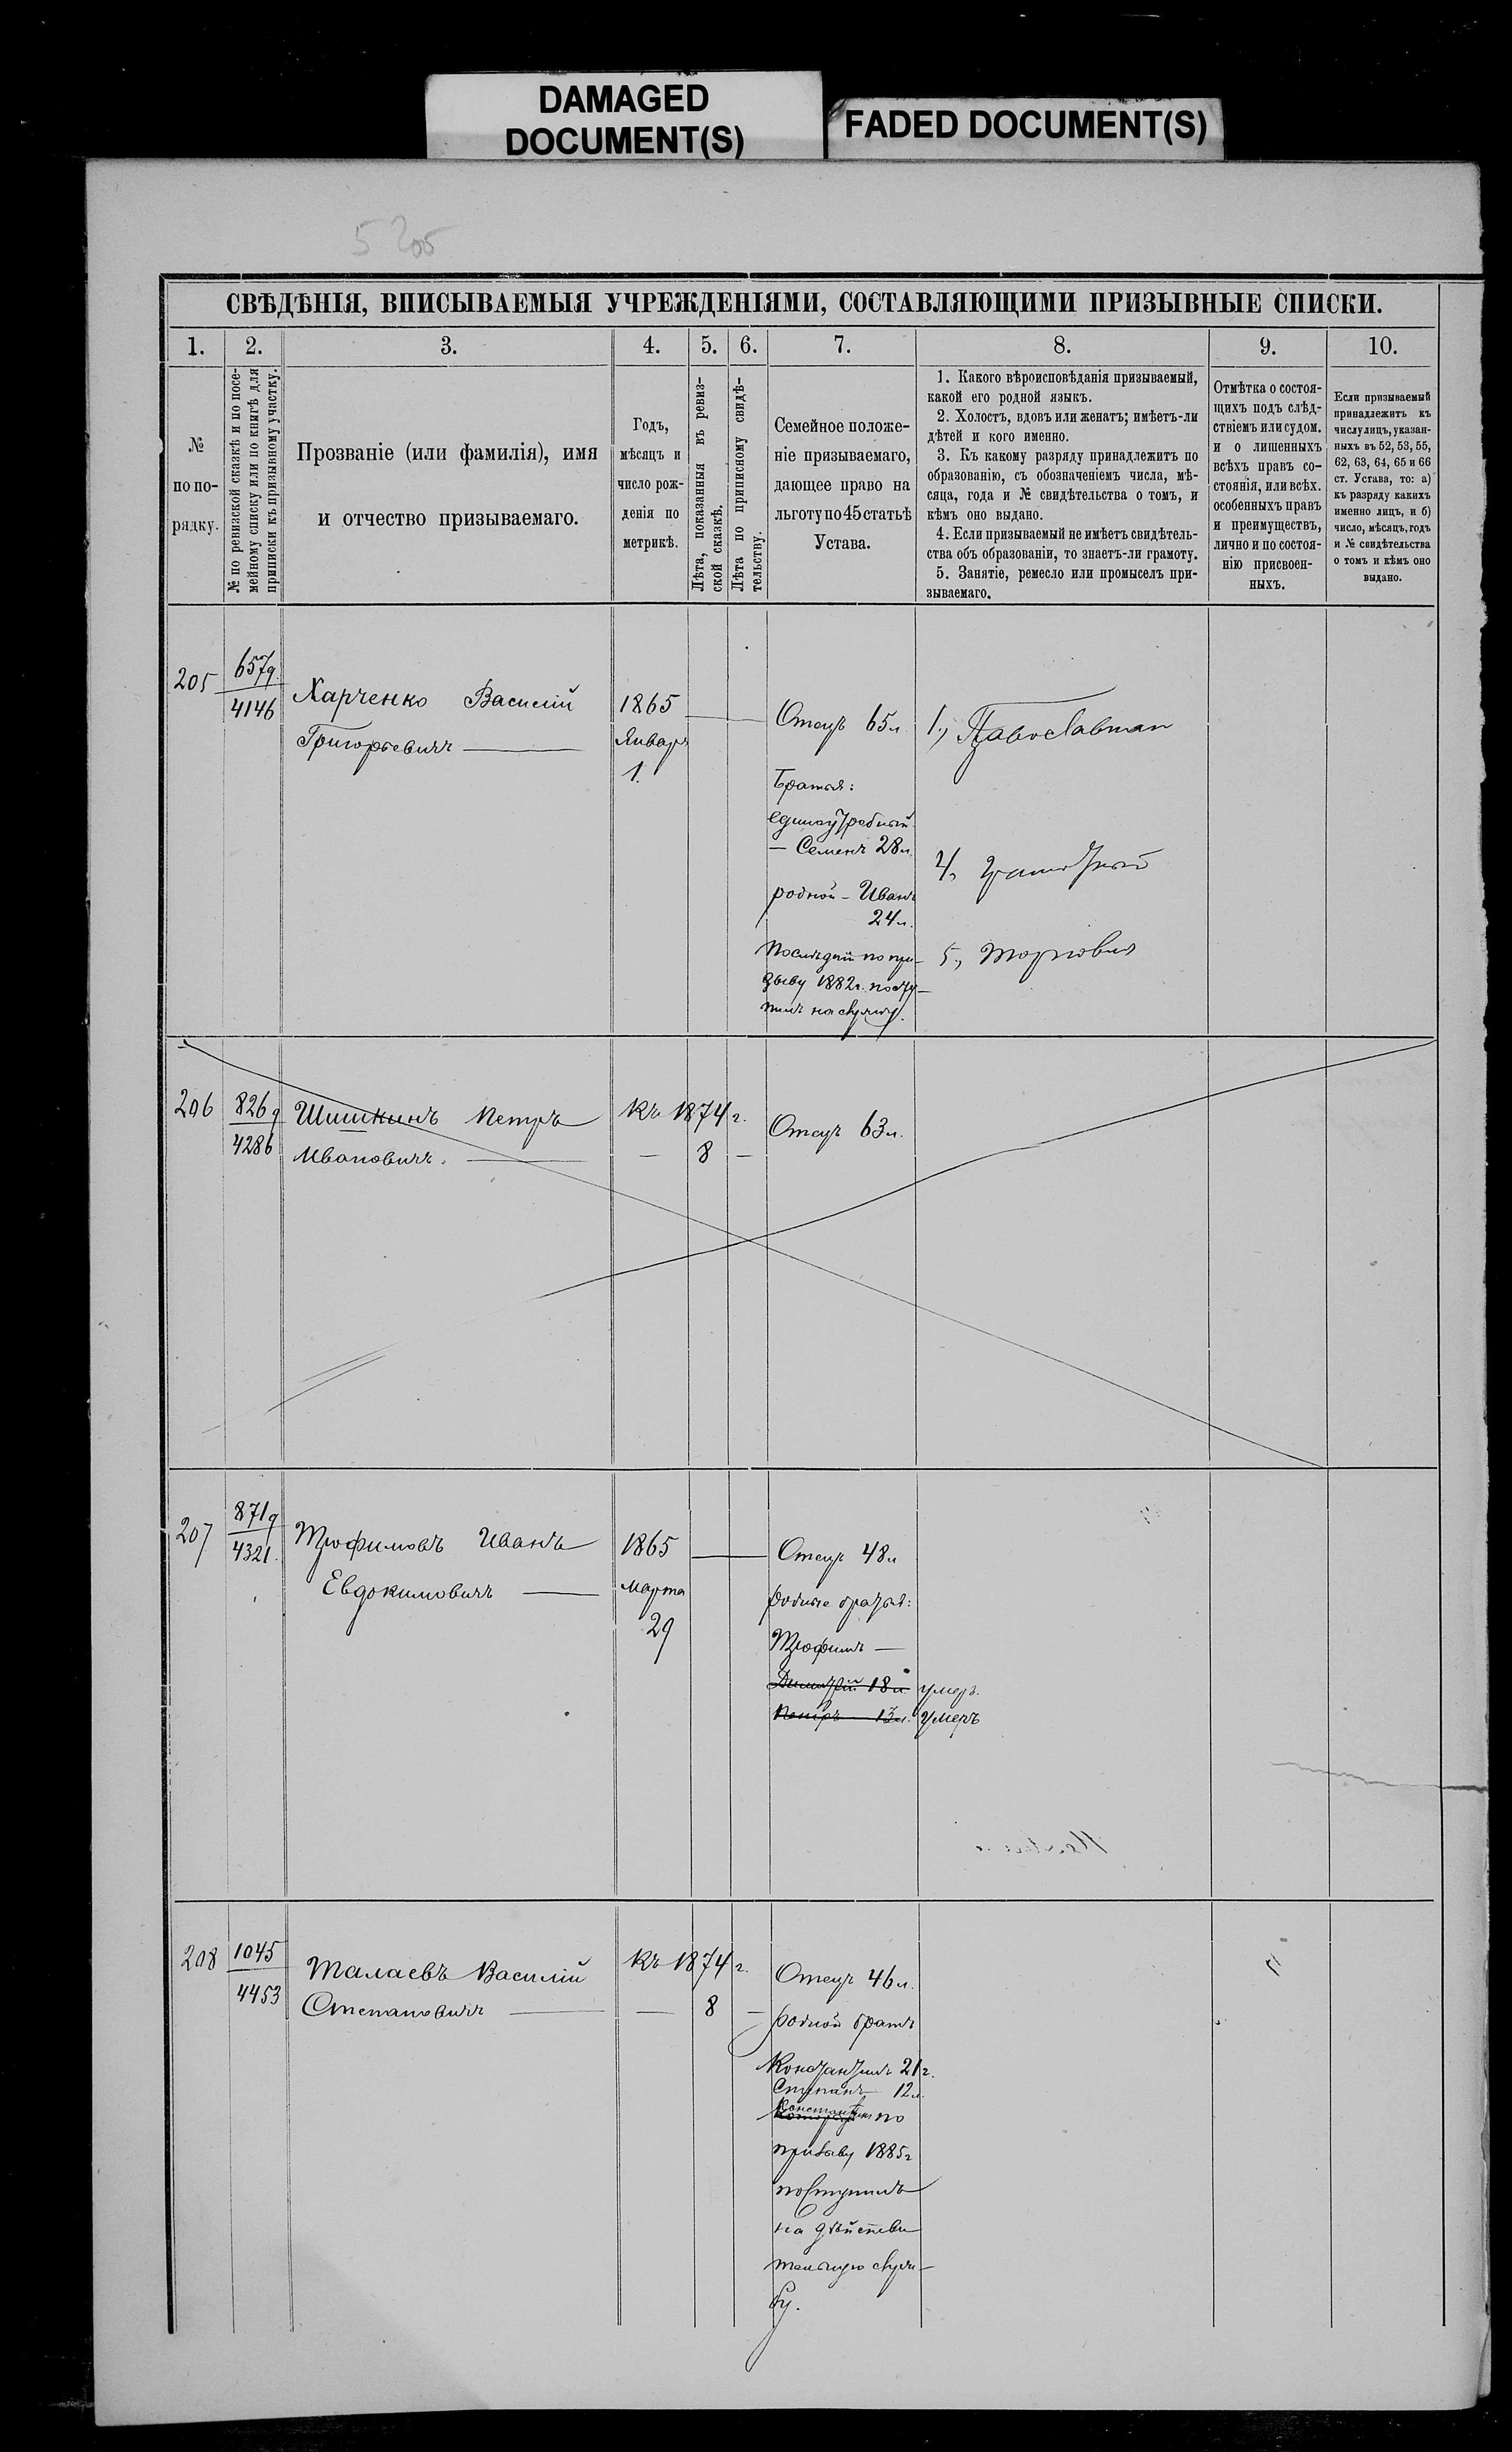 DAMAGED
DOCUMENT(S)
FADED DOCUMENT(S)
5 205
СВѢДѢНІЯ, ВПИСЫВАЕМЫЯ УЧРЕЖДЕНІЯМИ, СОСТАВЛЯЮЩИМИ ПРИЗЫВНЫЕ СПИСКИ.
1. 2. 3. 4. 5. 6. 7. 8. 9. 10.
№
по по-
рядку.
№ по ревизской сказкѣ и по посе-
мейному списку или по книгѣ для
приписки къ призывному участку.
Прозваніе (или фамилія), имя
и отчество призываемаго.
Годъ,
мѣсяцъ и
число рож-
денія по
метрикѣ.
Лѣта, показанныя въ ревиз-
ской сказкѣ.
Лѣта по приписному свидѣ-
тельству.
Семейное положе-
ніе призываемаго,
дающее право на
льготу по 45 статьѣ
Устава.
1. Какого вѣроисповѣданія призываемый,
какой его родной языкъ.
2. Холостъ, вдовъ или женатъ; имѣетъ-ли
дѣтей и кого именно.
3. Къ какому разряду принадлежитъ по
образованію, съ обозначеніемъ числа, мѣ-
сяца, года и № свидѣтельства о томъ, и
кѣмъ оно выдано.
4. Если призываемый не имѣетъ свидѣтель-
ства объ образованіи, то знаетъ-ли грамоту.
5. Занятіе, ремесло или промыселъ при-
зываемаго.
Отмѣтка о состоя-
щихъ подъ слѣд-
ствіемъ или судом.
и о лишенныхъ
всѣхъ правъ со-
стоянія, или всѣх.
особенныхъ правъ
и преимуществъ,
лично и по состоя-
нію присвоен-
ныхъ.
Если призываемый
принадлежитъ къ
числу лицъ, указан-
ныхъ въ 52, 53, 55,
62, 63, 64, 65 и 66
ст. Устава, то: а)
къ разряду какихъ
именно лицъ, и б)
число, мѣсяцъ, годъ
и № свидѣтельства
о томъ и кѣмъ оно
выдано.
205
657д
4146
Харченко Василій
Григорьевичъ
1865
Январ
1.
Отецъ 65л
Братья:
единоутробный
— Семенъ 28л.
родной - Иванъ
24л.
Последній по при-
зыву 1882г. посту-
пилъ на службу.
1., Православная
4, Грамотный
5., торговля
206
826д
4286
Шишкинъ Петръ
Ивановичъ.
Къ 1874 г.
— 8 —
Отецъ 63л.
207
871д
4321.
Трофимовъ Иванъ
Евдокимовичъ
1865
Марта
29
Отецъ 48л
родные братья:
Трофимъ —
Димитрій 18л. умеръ.
Петръ 13л. умеръ
208
1045
4453
Талаевъ Василій
Степановичъ
Къ 1874 г.
— 8 —
Отецъ 46л.
родной братъ
Константинъ 21г.
Степанъ 12л.
Константинъ
Который по
призыву 1885г
поступилъ
на дѣйстви
тельную служ-
бу.